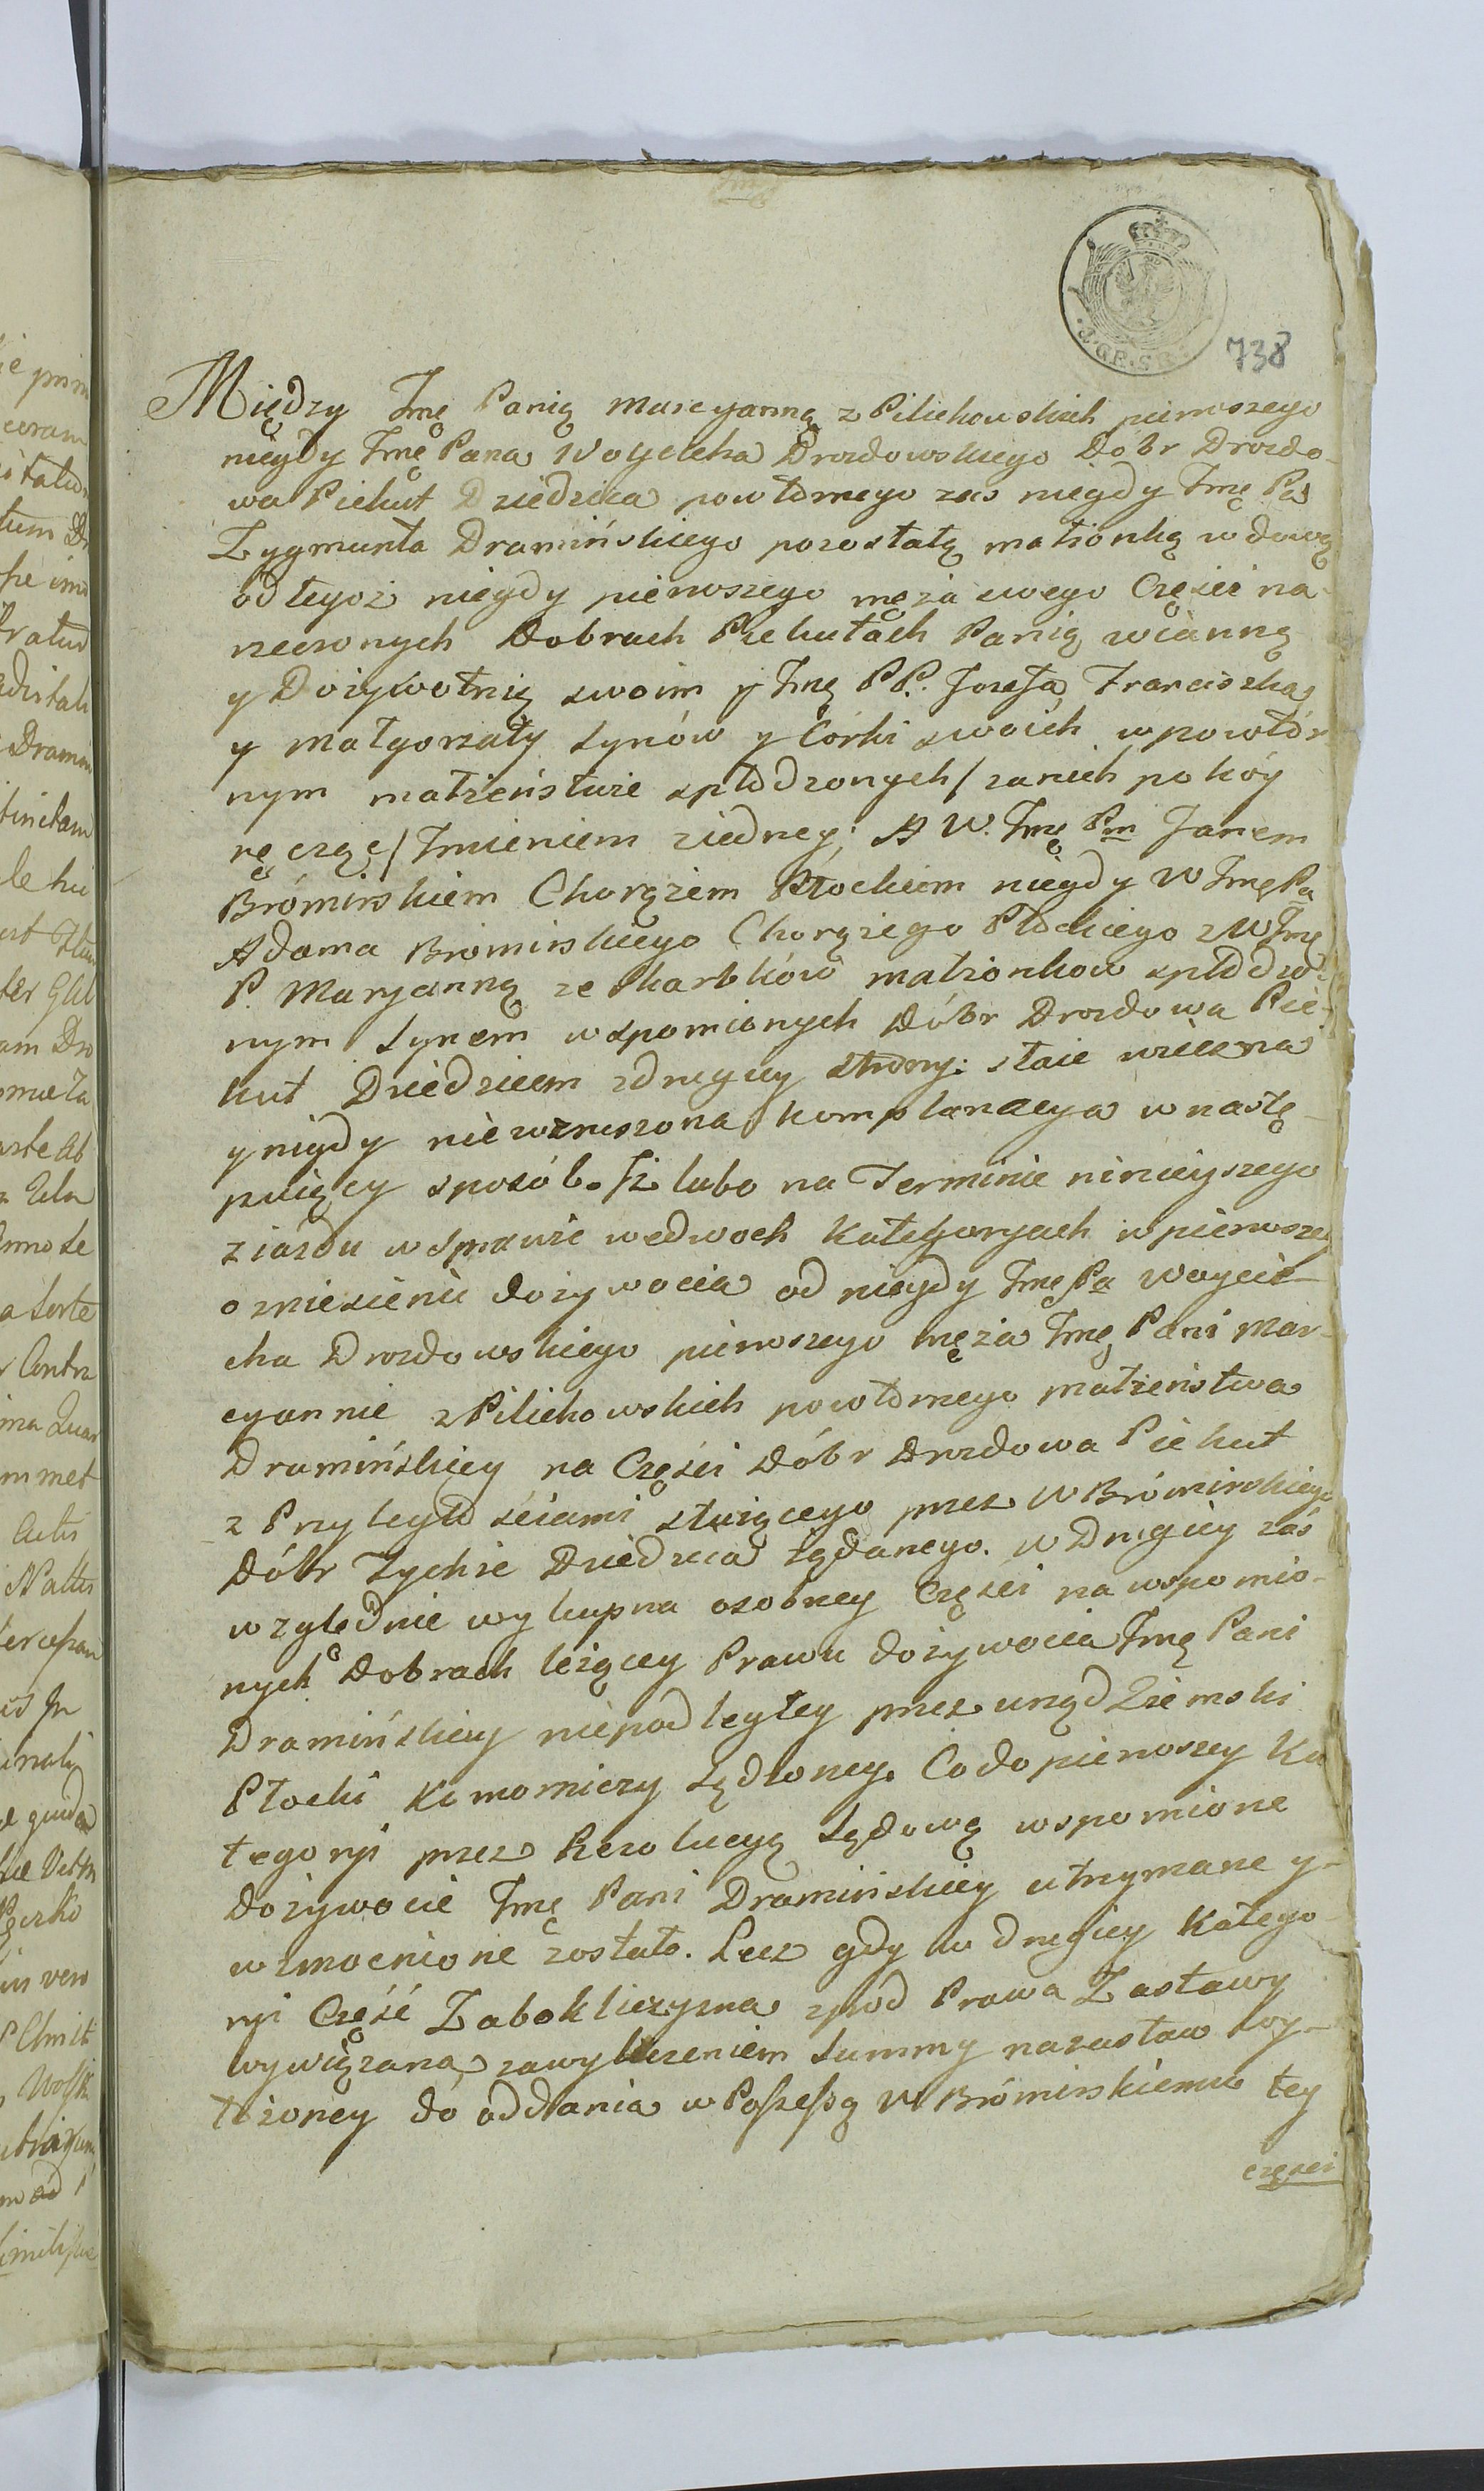 738
Między Jmę Panią Marcyanną z Pilichowskich pierwszego
niegdy Jmę Pana Woyciecha Drozdowskiego Dobr Drozdo-
wa Piekut Dziedzica powtórnego zas niegdy Jmę Pa
Zygmunta Dramińskiego pozostałą małżonką wdową
od tegoż niegdy pierwszego męża swego Części na
rzeczonych Dobrach Piekutach Panią wianną
y Dożywotnią swoim y Jmę PP. Jozefa, Franciszka
y Małgorzaty Synów y Córki swoich w powtór
nym małżeństwie spłodzonych / za nich pokóy
ręcząc / Jmieniem z iedney; A W. Jmę Pm Janem
Brómirskiem Chorążem Płockiem niegdy W Jmę Pa
Adama Bromirskiego Chorążego Płockiego z W Jmę
P. Maryanną ze Skarbków małżonkow spłodzo-
nym Synem wspomionych Dóbr Drozdowa Pie-
kut Dziedzicem z drugiey strony: staie wieczna
y nigdy niewzruszona komplanacya w nastę-
puiący sposób. Jż lubo na Terminie ninieyszego
ziazdu w Sprawie we dwoch Kategoryach w pierwszey
o zniesienie dożywocia od niegdy Jmę Pa Woycie-
cha Drozdowskiego pierwszego męża Jmę Pani Mar-
cyannie z Pilichowskich powtórnego małżeństwa
Dramińskiey na Części Dóbr Drozdowa Piekut
z Przyległościami służącego przez W Brómirskiego
Dóbr Tychże Dziedzica żądanego. w Drugiey zaś
względnie wykupna osobney Części na wspomio-
nych Dobrach leżącey Prawu dożywocia Jmę Pani
Dramińskiey niepodległey przez urząd Ziemski
Płocki Komorniczy sądzoney. Co do pierwszey Ka
tegoryi przez Rezolucyą Sądową wspomione
dożywocie Jmę Pani Dramińskiey utrzymane y-
wzmocnione zostało. Lecz gdy w drugiey Katego-
ryi Część Zabokliczyzna zpod Prawa Zastawy
wywiązana, za wyliczeniem Summy na zastaw wy-
łożoney do oddania w Possessyą W Brómirskiemu tey
części